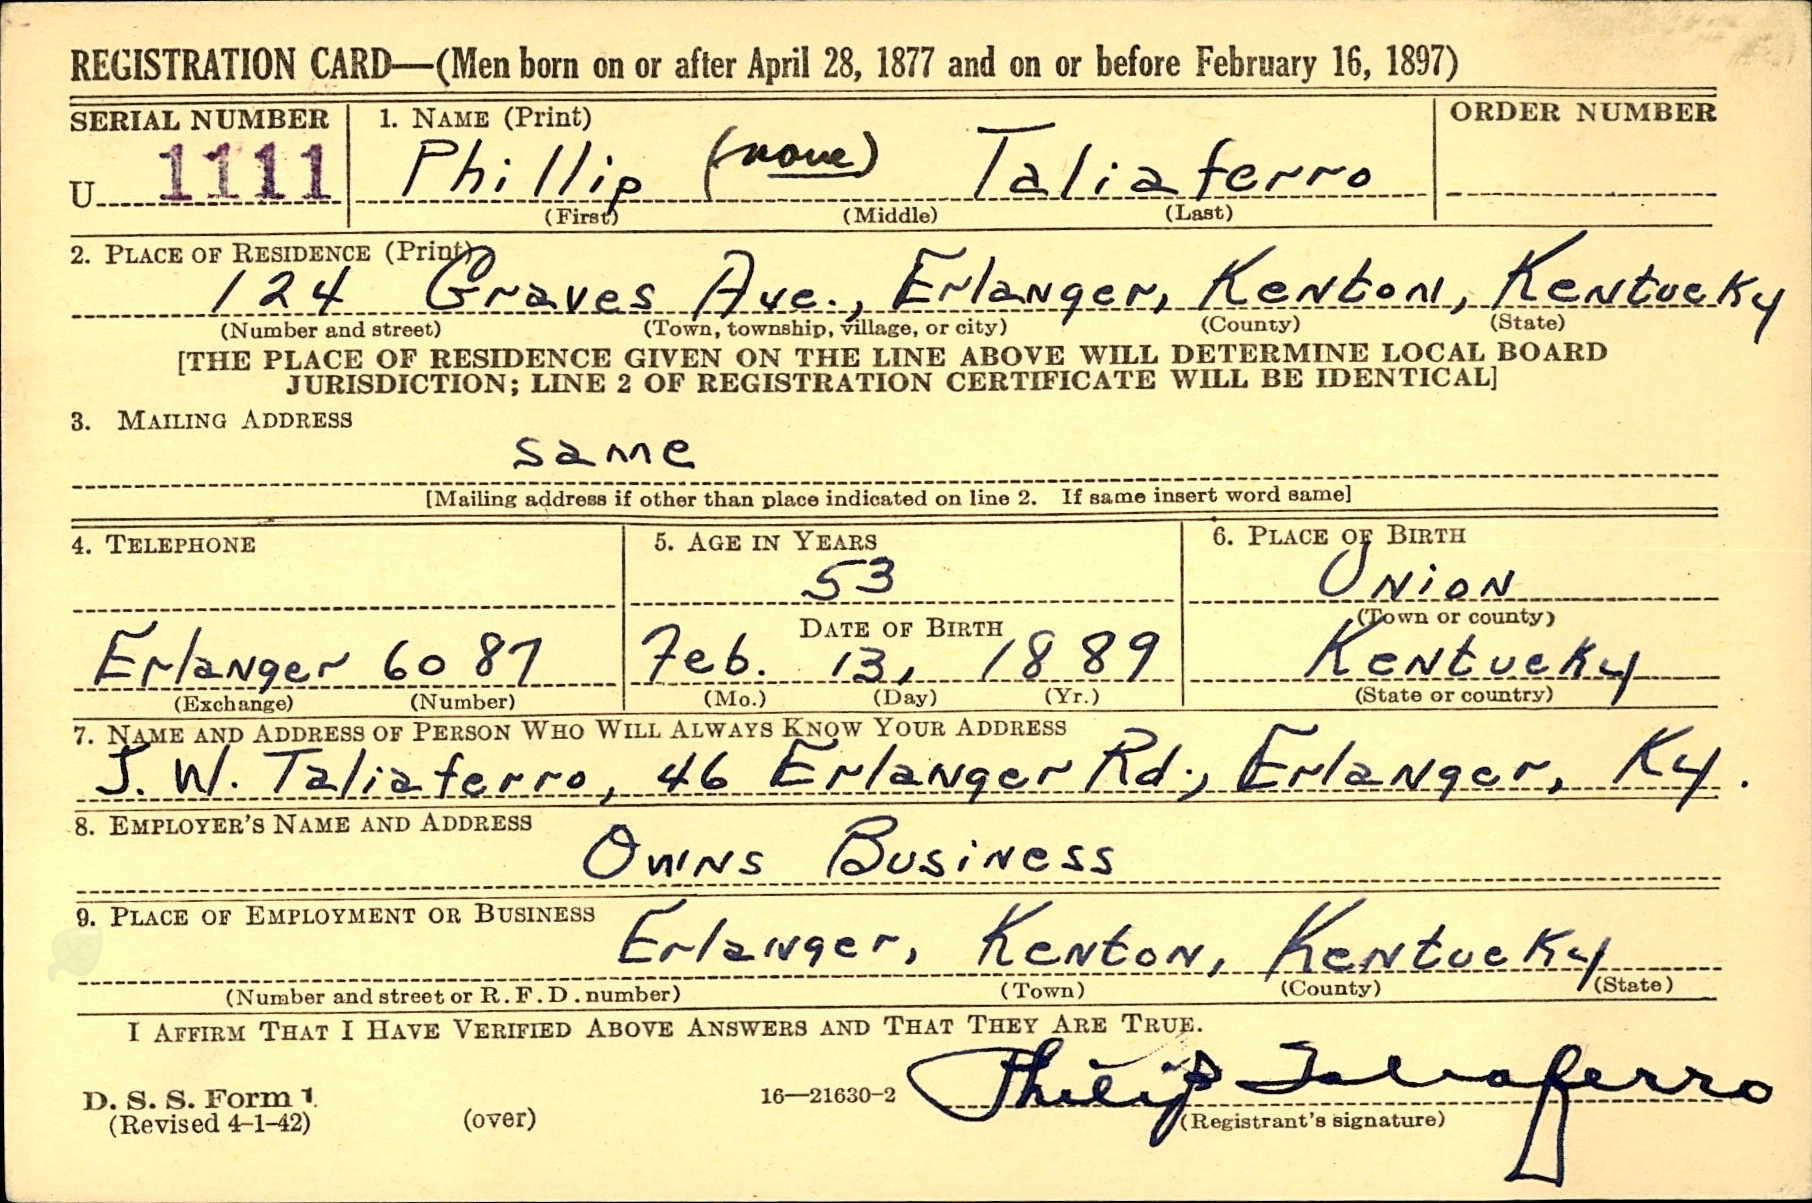 REGISTRATION CARD—(Men born on or after April 28, 1877 and on or before February 16, 1897)
SERIAL NUMBER 1. NAME (Print) ORDER NUMBER
U 1111 Phillip (none) Taliaferro
(First) (Middle) (Last)
2. PLACE OF RESIDENCE (Print)
124 Graves Ave., Erlanger, Kenton, Kentucky
(Number and street) (Town, township, village, or city) (County) (State)
[THE PLACE OF RESIDENCE GIVEN ON THE LINE ABOVE WILL DETERMINE LOCAL BOARD
JURISDICTION; LINE 2 OF REGISTRATION CERTIFICATE WILL BE IDENTICAL]
3. MAILING ADDRESS
same
[Mailing address if other than place indicated on line 2. If same insert word same]
4. TELEPHONE 5. AGE IN YEARS 6. PLACE OF BIRTH
53 Union
DATE OF BIRTH (Town or county)
Erlanger 6087 Feb. 13, 1889 Kentucky
(Exchange) (Number) (Mo.) (Day) (Yr.) (State or country)
7. NAME AND ADDRESS OF PERSON WHO WILL ALWAYS KNOW YOUR ADDRESS
J. W. Taliaferro, 46 Erlanger Rd., Erlanger, Ky.
8. EMPLOYER'S NAME AND ADDRESS
Owns Business
9. PLACE OF EMPLOYMENT OR BUSINESS
Erlanger, Kenton, Kentucky
(Number and street or R. F. D. number) (Town) (County) (State)
I AFFIRM THAT I HAVE VERIFIED ABOVE ANSWERS AND THAT THEY ARE TRUE.
Philip Taliaferro
D. S. S. Form 1 16—21630-2
(Revised 4-1-42) (over) (Registrant's signature)